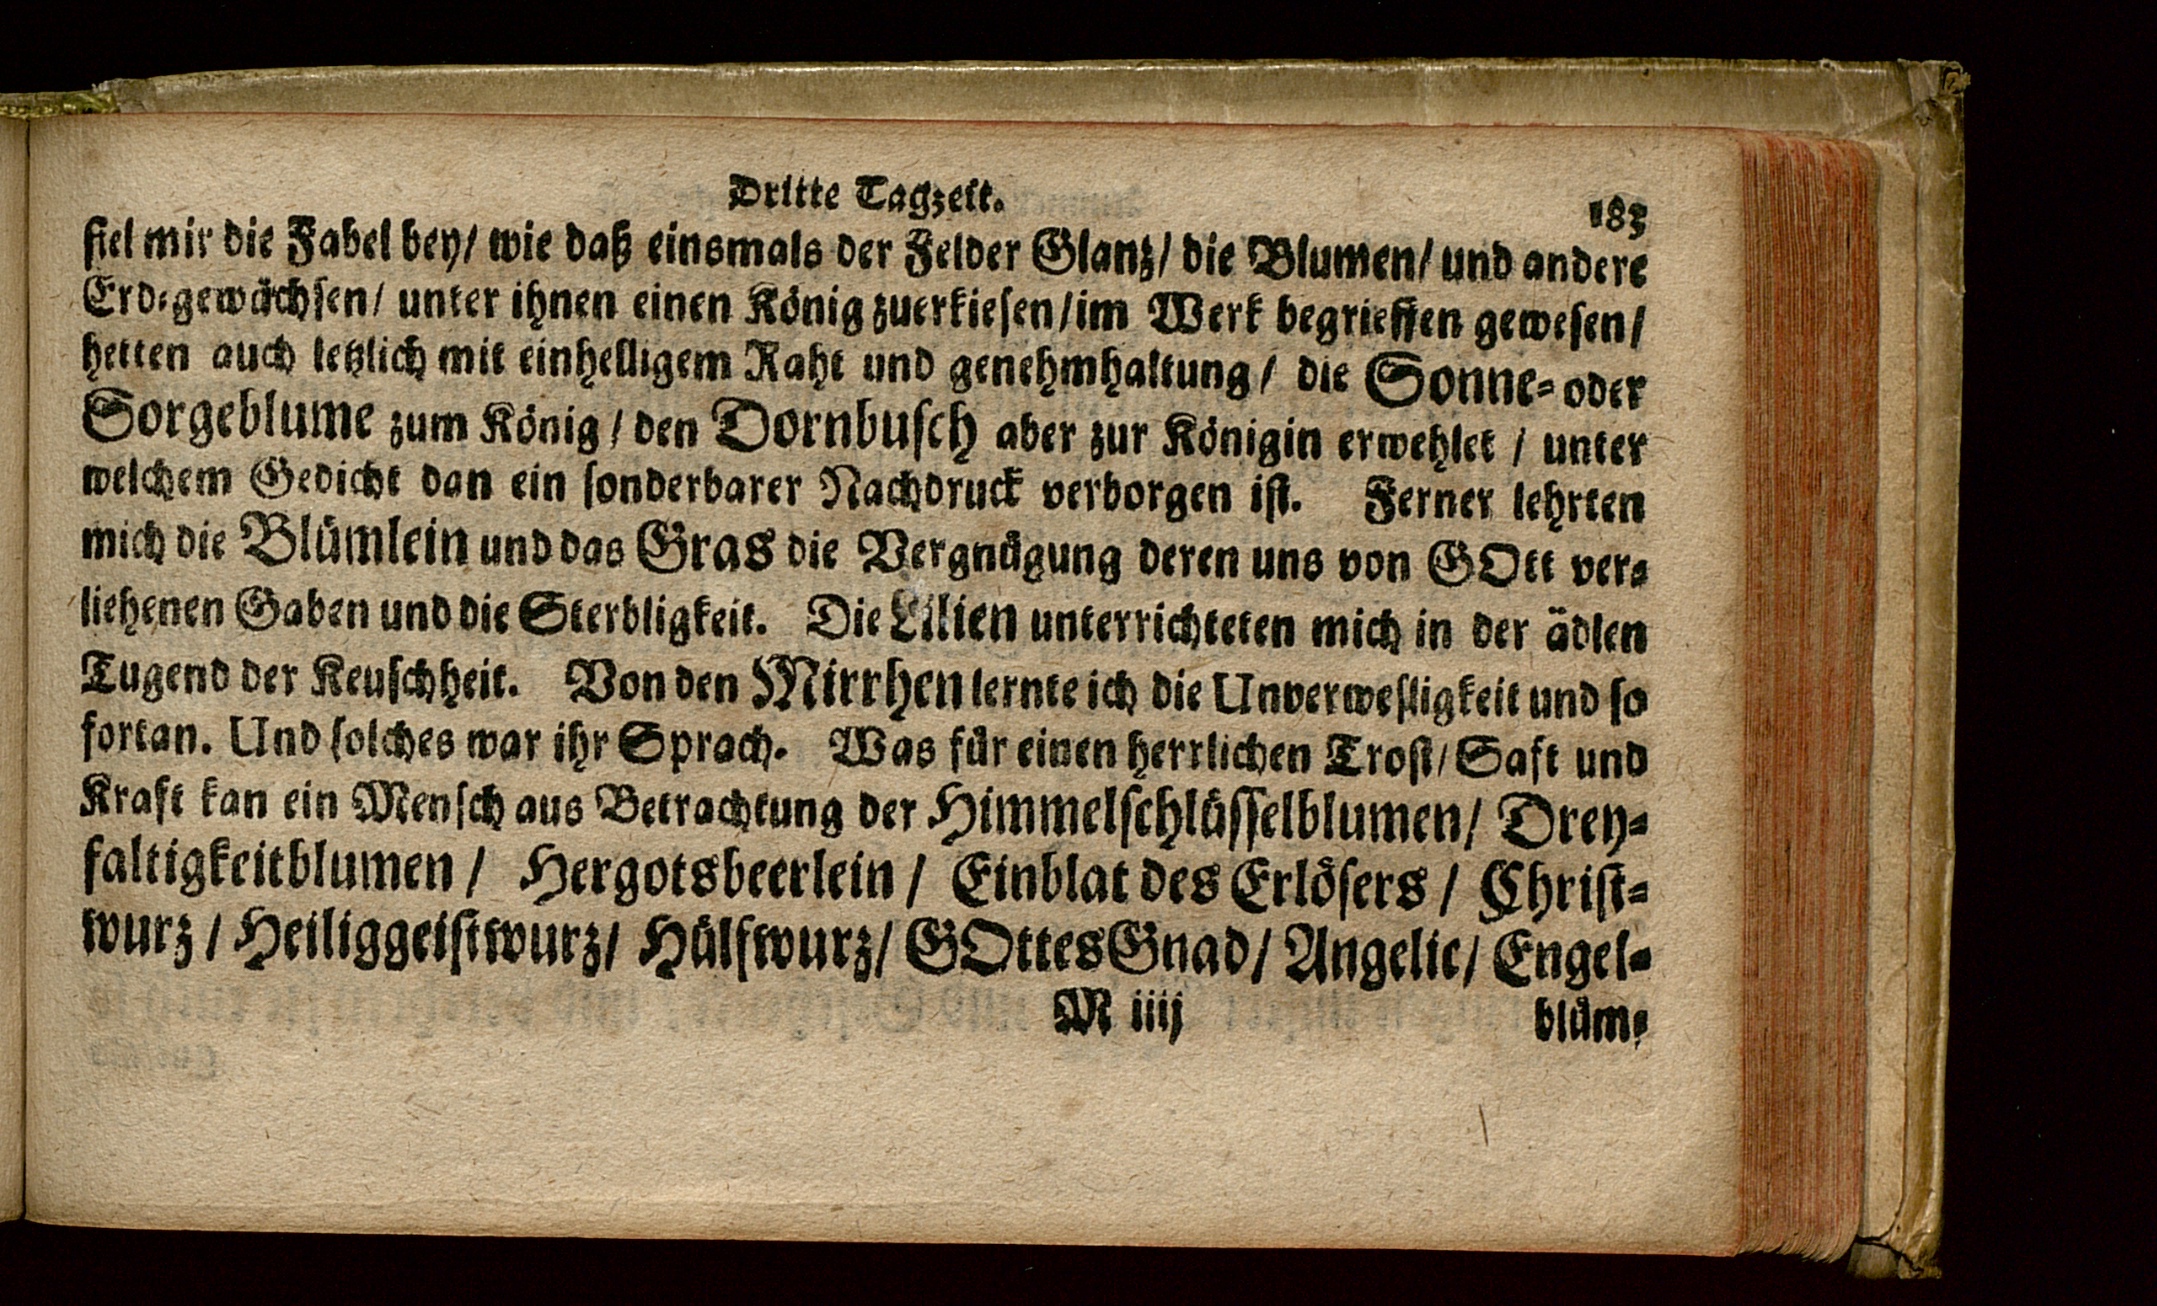 Dritte Tagzeit.
183
fiel mir die Fabel bey/ wie daß einsmals der Felder Glanz/ die Blumen/ und andere
Erd-gewächsen/ unter ihnen einen König zuerkiesen/ im Werk begrieffen gewesen/
hetten auch letzlich mit einhelligem Raht und genehmhaltung/ die Sonne- oder
Sorgeblume zum König/ den Dornbusch aber zur Königin erwehlet / unter
welchem Gedicht dan ein sonderbarer Nachdruck verborgen ist. Ferner lehrten
mich die Blümlein und das Gras die Vergnügung deren uns von GOtt ver-
liehenen Gaben und die Sterbligkeit. Die Lilien unterrichteten mich in der ädlen
Tugend der Keuschheit. Von den Mirrhen lernte ich die Unverwesligkeit und so
fortan. Und solches war ihr Sprach. Was für einen herrlichen Trost/ Saft und
Kraft kan ein Mensch aus Betrachtung der Himmelschlüsselblumen/ Drey-
faltigkeitblumen / Hergotsbeerlein / Einblat des Erlösers / Christ-
wurz / Heiliggeistwurz/ Hülfwurz/ GOttesGnad/ Angelic/ Engel-
M iiij
blüm-